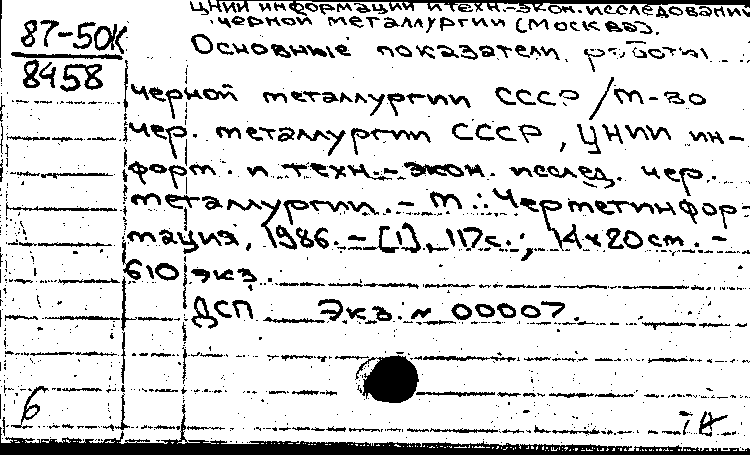 ЦНИИ информации и техн.-экон. исследований
черной металлургии (Москва).
87-50К
8458
Основные показатели работы
черной металлургии СССР / М-во
чер. металлургии СССР, ЦНИИ ин-
форм. и техн.-экон. исслед. чер.
металлургии. - М.: Черметинфор-
мация, 1986. - [1], 117 с.; 14х20 см. -
610 экз.
ДСП Экз. № 00007.
6